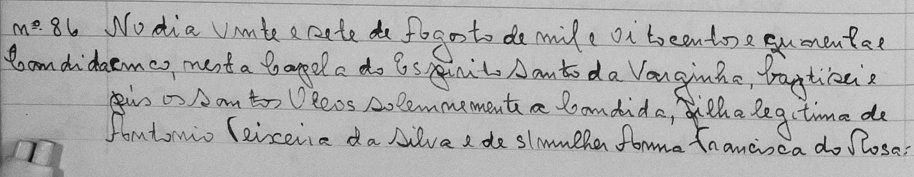 nº. 86 No dia vinte e sete de Agosto de mil e oitocentos e quarentae
Candida cinco, nesta Capela do Espírito Santo da Varginha, baptizei e
pus os Santos Oleos solennemente a Candida, filha legitima de
Antonio Teixeira da Silva e de s/mulher Anna Francisca do Rosa: